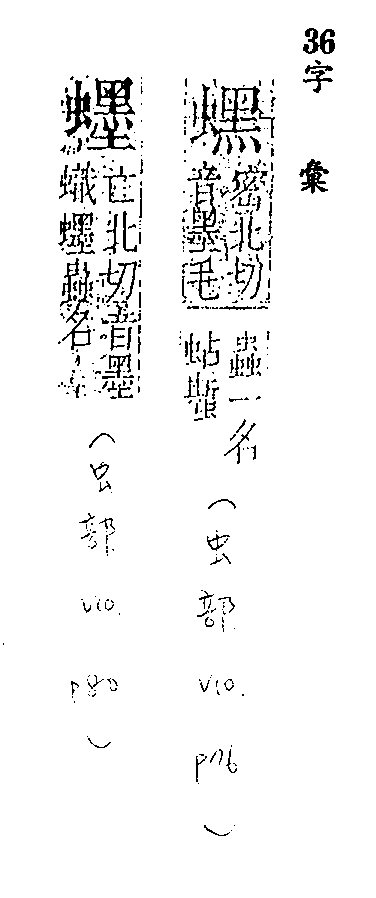 36字彙
䗫
密北切
音墨毛
蟲一名
蛅蟖
(虫部 V10. P76)
蟔
亡北切音墨
蟙蟔蟲名
(虫部 V10. P80)